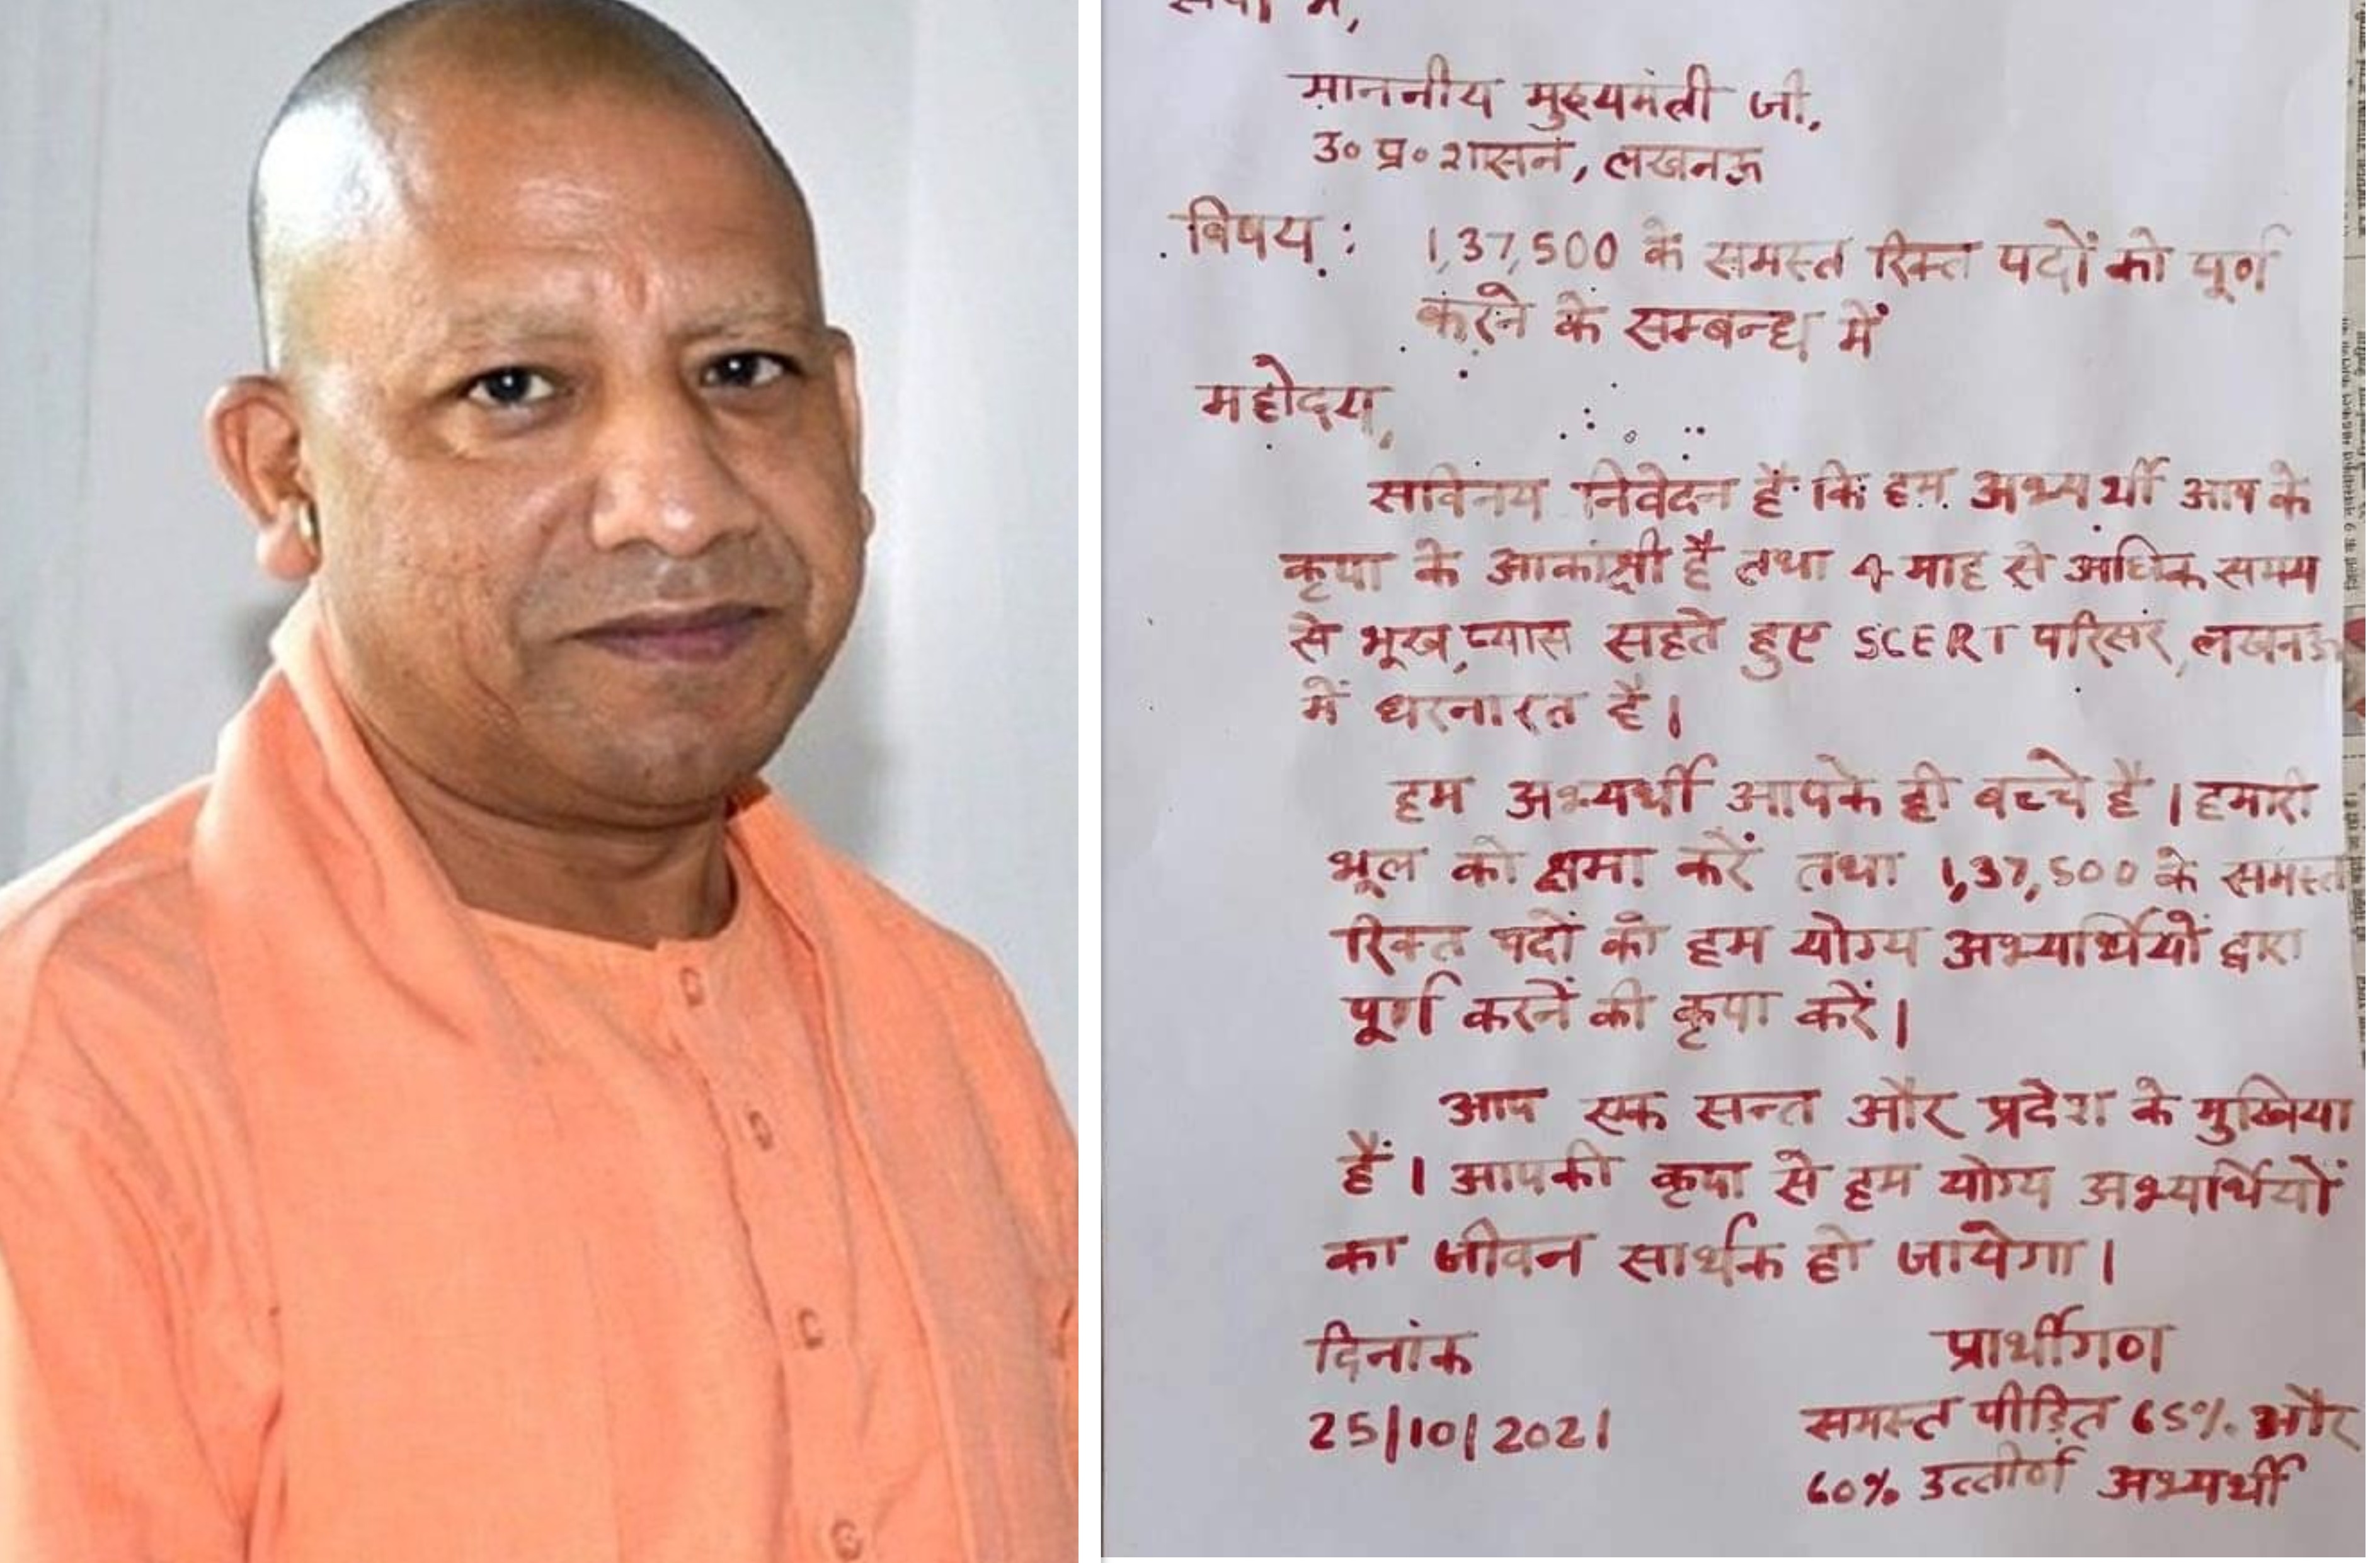 सेवा में,
माननीय मुख्यमंत्री जी,
उ० प्र० शासन, लखनऊ
विषय : 1,37,500 के समस्त रिक्त पदों को पूर्ण
करने के सम्बन्ध में
महोदय,
सविनय निवेदन है कि हम अभ्यर्थी आप के
कृपा के आकांक्षी है तथा 4 माह से अधिक समय
से भूख, प्यास सहते हुए SCERT परिसर, लखनऊ
में धरनारत है।
हम अभ्यर्थी आपके ही बच्चे है। हमारी
भूल को क्षमा करें तथा 1,37,500 के समस्त
रिक्त पदों को हम योग्य अभ्यर्थियों द्वारा
पूर्ण करनें की कृपा करें।
आप एक सन्त और प्रदेश के मुखिया
हैं। आपकी कृपा से हम योग्य अभ्यर्थियों
का जीवन सार्थक हो जायेगा।
दिनांक
25/10/2021
प्रार्थीगण
समस्त पीड़ित 65% और
60% उत्तीर्ण अभ्यर्थी